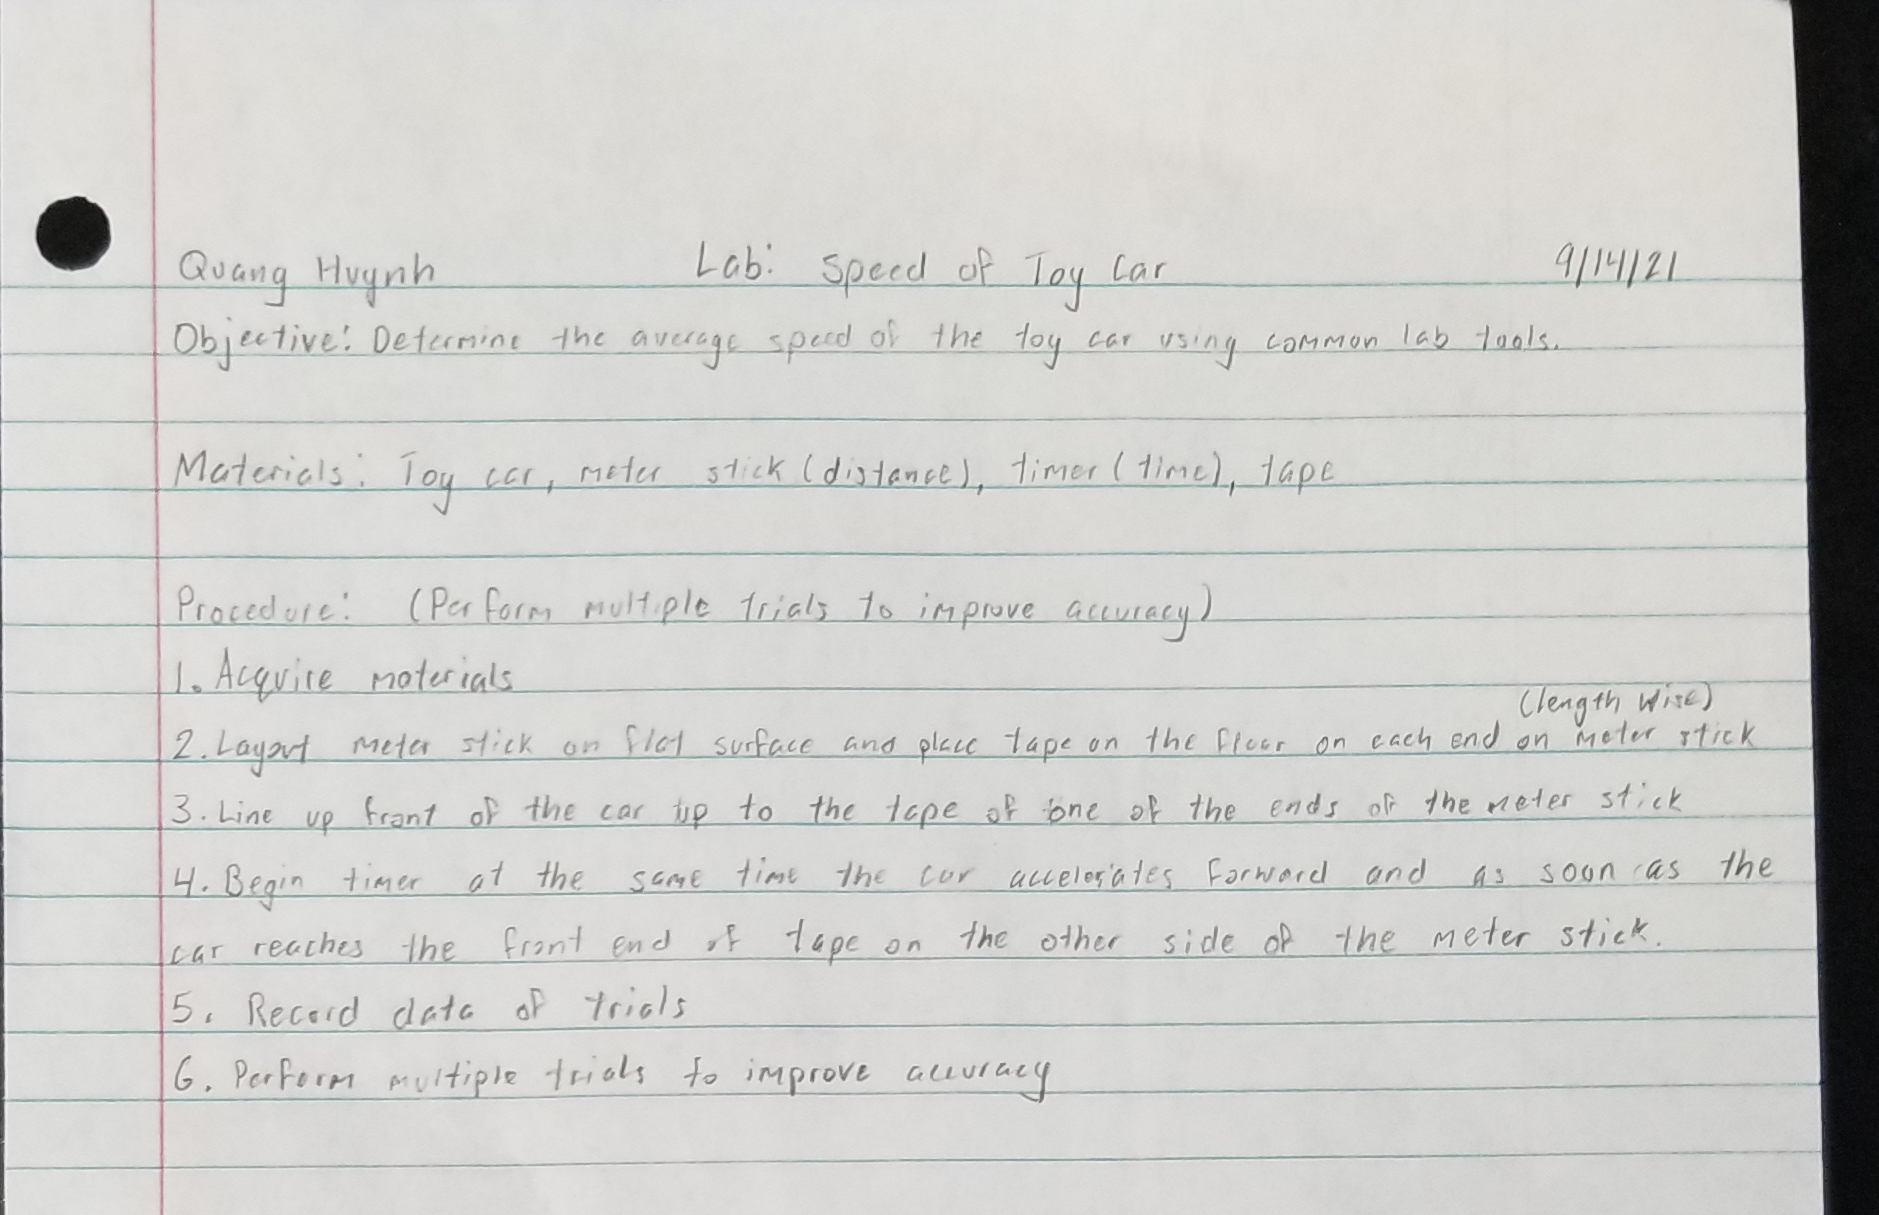 Quang Huynh Lab: Speed of Toy Car 9/14/21
Objective: Determine the average speed of the toy car using common lab tools.
Materials: Toy car, meter stick (distance), timer (time), tape
Procedure: (Perform multiple trials to improve accuracy)
1. Acquire materials
(length wise)
2. Layout meter stick on flat surface and place tape on the floor on each end on meter stick
3. Line up front of the car up to the tape of one of the ends of the meter stick
4. Begin timer at the same time the car accelerates forward and as soon as the
car reaches the front end of tape on the other side of the meter stick.
5. Record data of trials
6. Perform multiple trials to improve accuracy